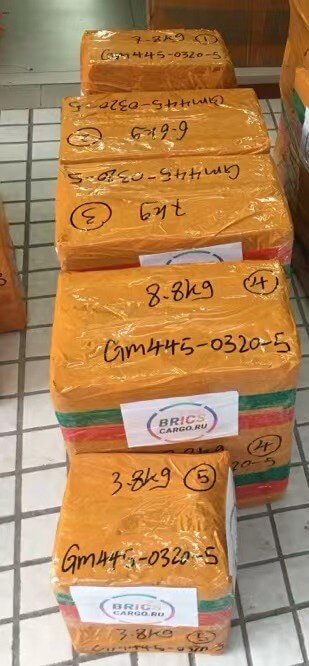 7.8kg ①
GM445-0320-5
GM445-0320-5
6.6kg ②
GM445-0320-5
7kg ③
8.8kg ④
GM445-0320-5
BRICS
CARGO.RU
④
20-5
3.8kg ⑤
GM445-0320-5
BRICS
CARGO.RU
3.8kg ⑤